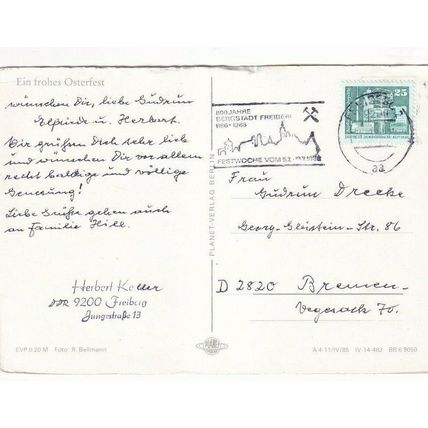 Ein frohes Osterfest
wünschen Dir, liebe Gudrun
Elfriede u. Herbert.
Wir grüßen Dich sehr lieb
und wünschen Dir vor allem
recht baldige und völlige
Genesung!
Liebe Grüße gehen auch
an Familie Hill.
Herbert
DDR 9200 Freiberg
Jungestraße 13
EVP 0,20 M Foto: R. Bellmann
PLANET-VERLAG BERLIN
PLANET
800 JAHRE
BERGSTADT FREIBERG
1186-1986
FESTWOCHE VOM
25
Frau
Gudrun Drecke
Georg-Gleistein-Str. 86
D 2820 Bremen-
Vegesack 70.
A 4-11/IV/85 IV-14-483 BB 6 9050